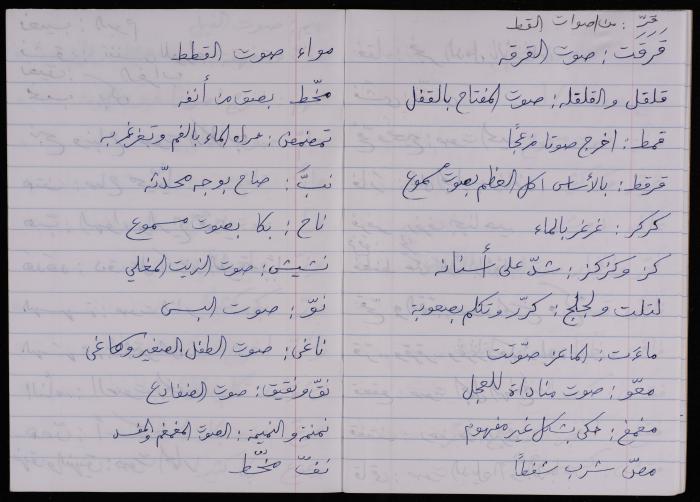 قرّ: من اصوات القط
قرقت: صوت القرقه
قلقل والقلقله: صوت المفتاح بالقفل
قمط: اخرج صوتا مزعجًا
قرقط: بالأساس اكل العظم بصوت مسموع
كركر: غرغر بالماء
كز وكزكز: شدّ على أسنانه
لتلت ولجلج: كرّر وتكلم بصعوبة
ماءت: الماعز صوّتت
معّو: صوت مناداة للعجل
مغمغ: حكى بشكل غير مفهوم
مصّ شرب شفطاً
مواء صوت القطط
مخّط بصق من أنفه
تمضمض: حرك الماء بالفم وتغرغر به
نبّ: صاح بوجه محدّثه
ناح: بكا بصوت مسموع
نشيش: صوت الزيت المغلي
نوّ: صوت البس
ناغى: صوت الطفل الصغير وكاغى
نقّ ونقيق: صوت الضفادع
نمنم والنميمة: الصوت المغمغم والمفسد
نفّ مخّط